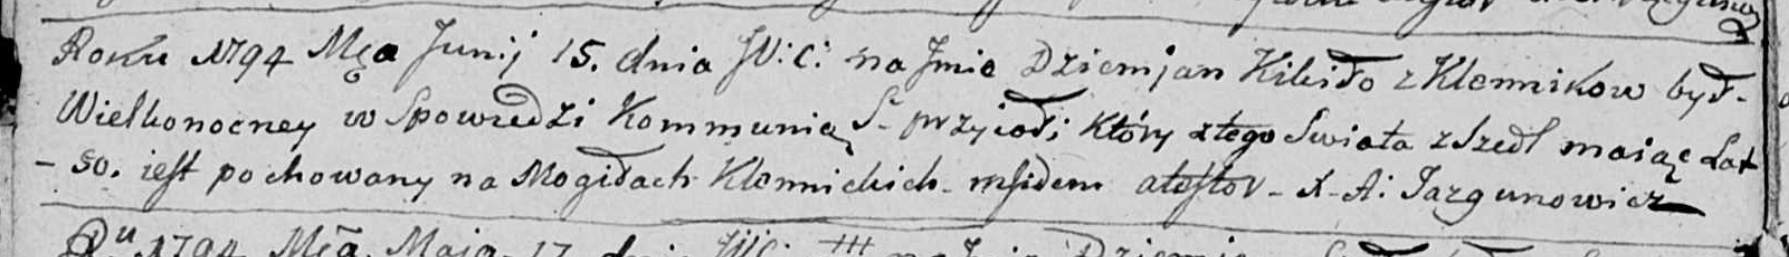 Roku 1794 Mca Junij 15. dnia JW: C: na Jmie Dziemjan Kikiło z Klennikow był-
Wielkonocney w Spowiedzi Kommunią S- przyioł; który z tego Swiata zszedł maiąc Lat
- 50. iest pochowany na Mogiłach Klennickich- atestor- X- A: Jazgunowicz
Ru 1794 Mca Maja 17 dnia